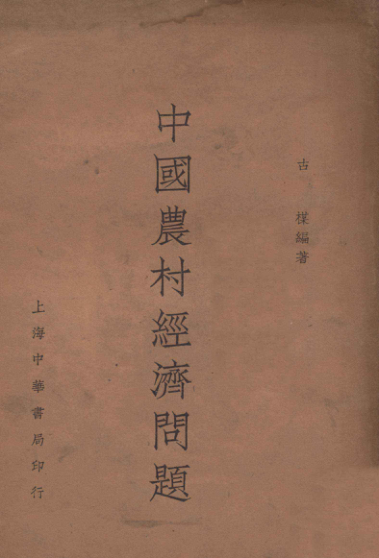 古楳編著
中國農村經濟問題
上海中華書局印行